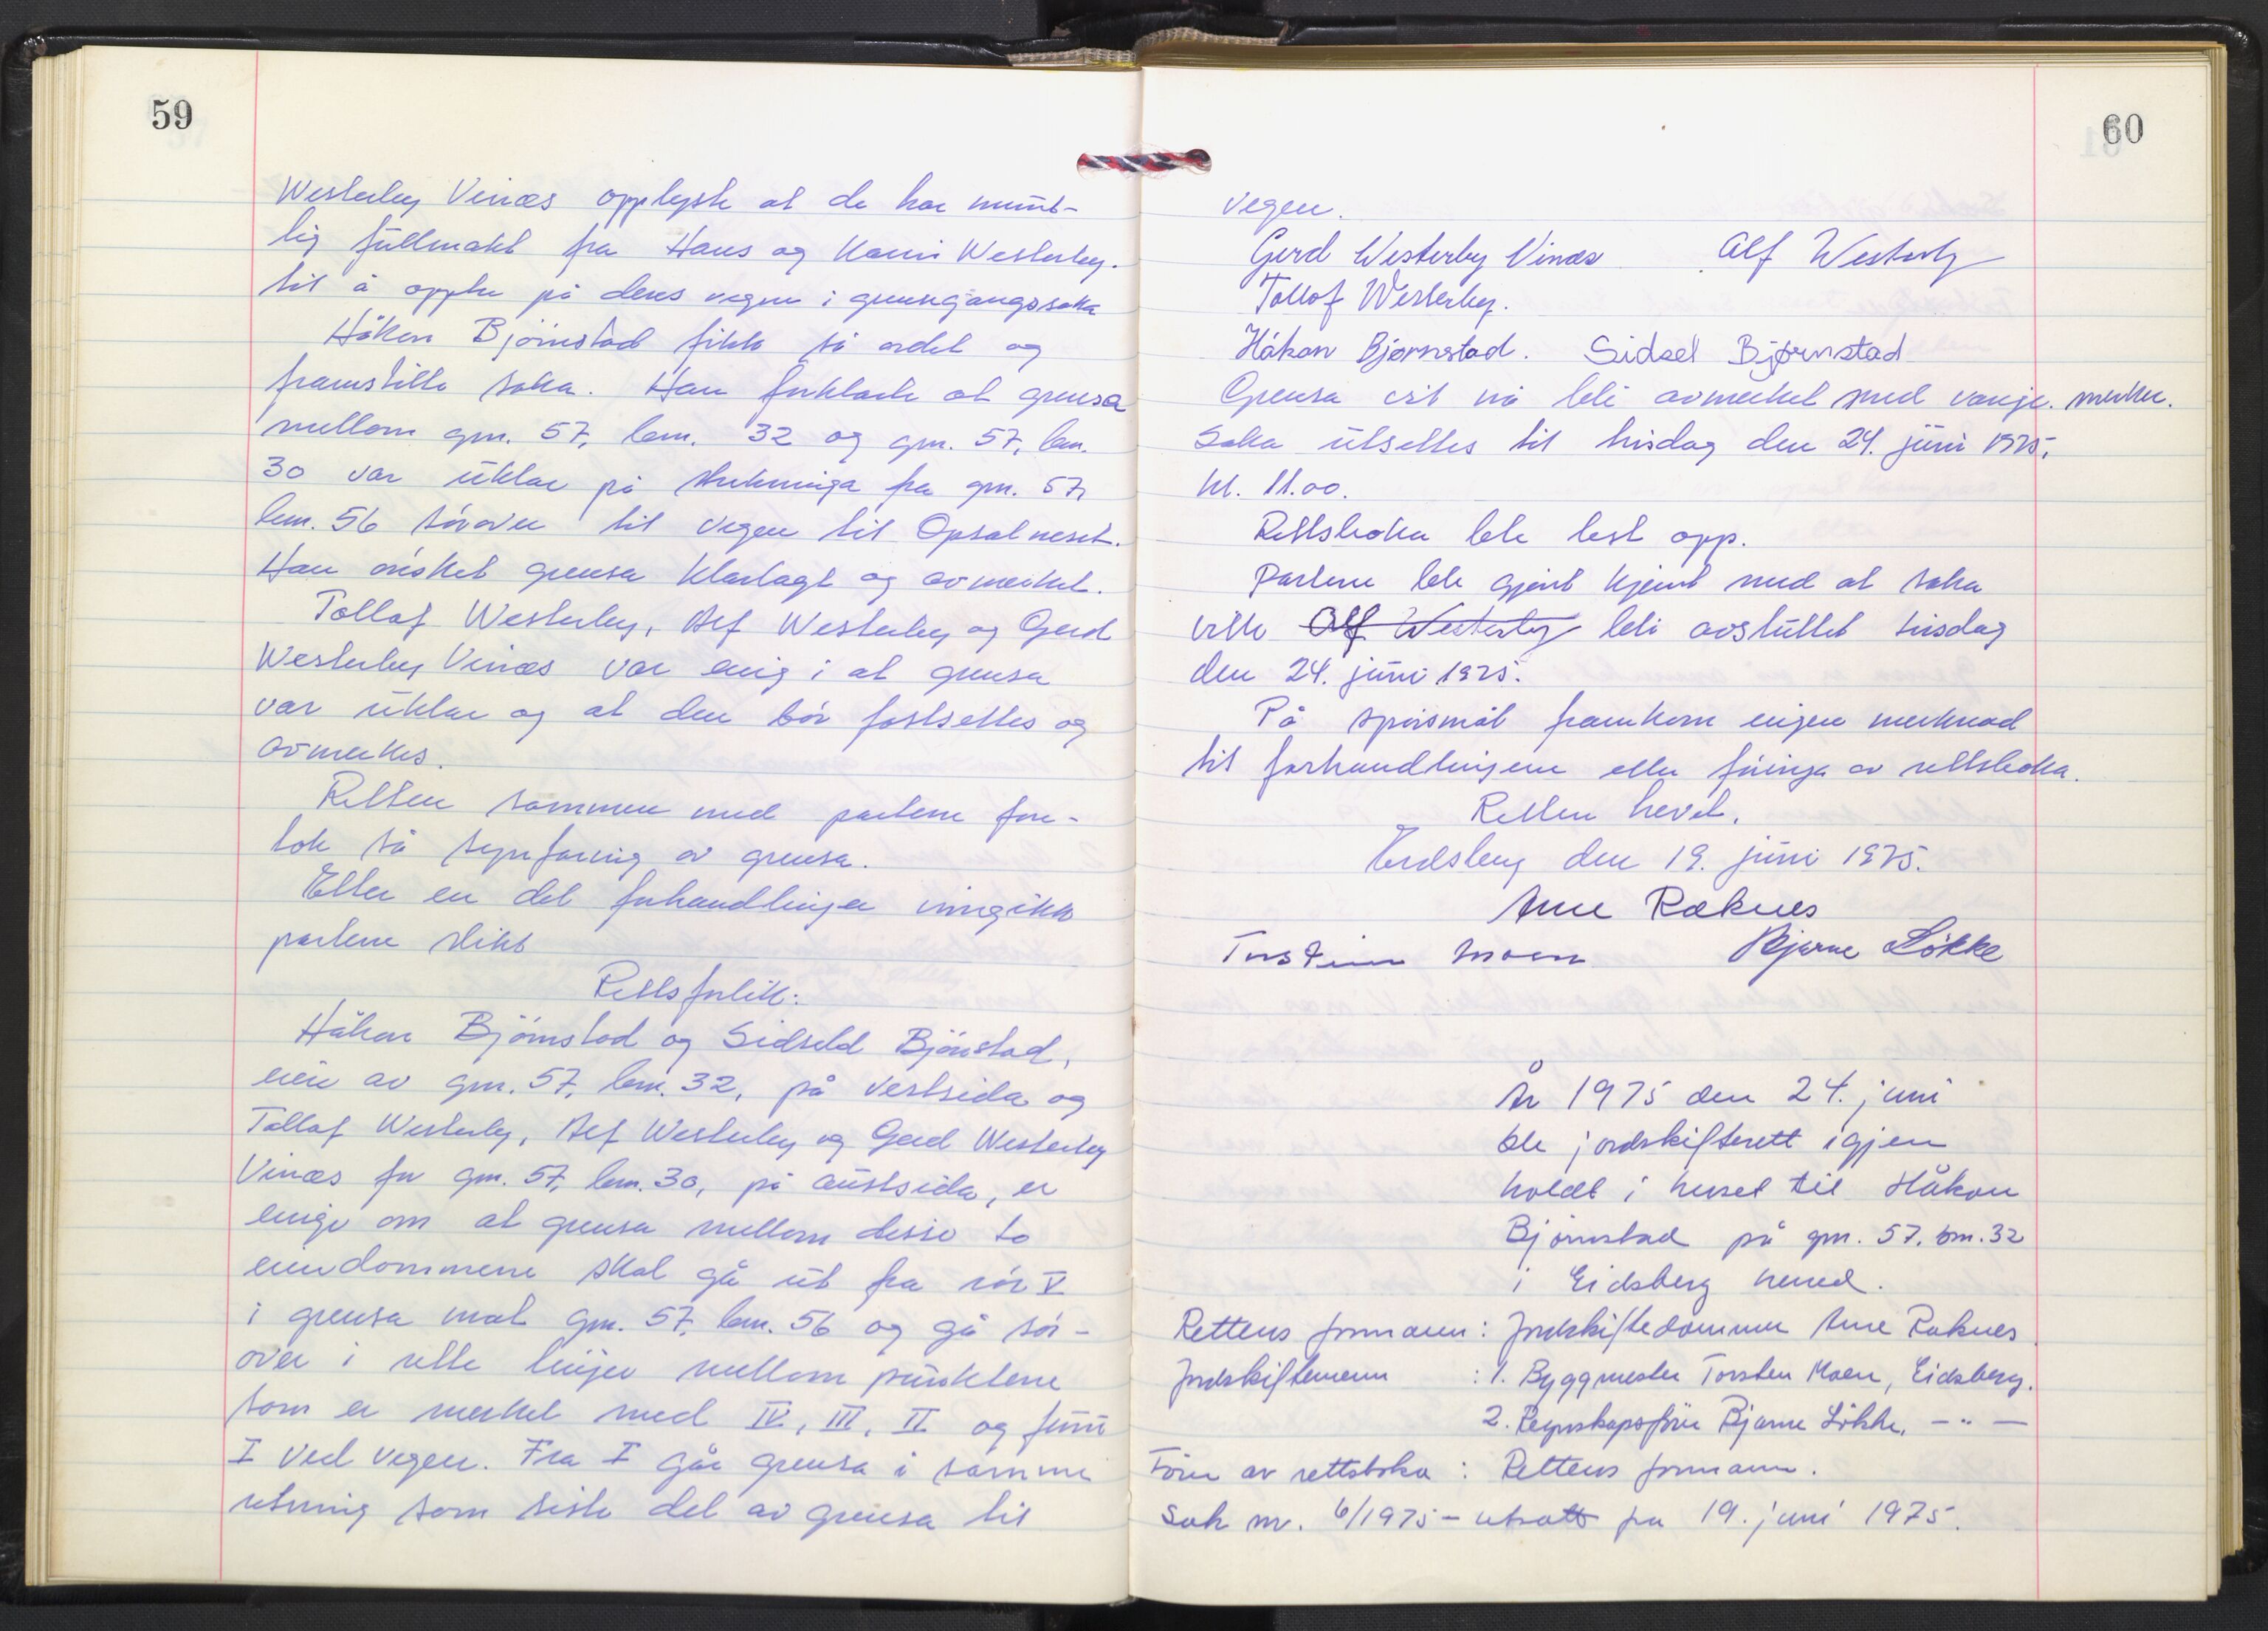 59
Westerby Vinæs opplyste at de har munt-
lig fullmakt fra Hans og Karin Westerby.
til å opptre på deres vegne i grensegangssaka
Håkon Björnstad fikk så ordet og
framstilte saka. Han forklarte at grensa
mellom gnr. 57, bnr. 32 og gnr. 57, bnr.
30 var uklar på strekninga fra gnr. 57,
bnr. 56 sörover til vegen til Opsalneset.
Han önsket grensa klarlagt og avmerket.
Tollof Westerby, Alf Westerby og Gerd
Westerby Vinæs var enig i at grensa
var uklar og at den bör fastsettes og
avmerkes.
Retten sammen med partene fore-
tok så synfaring av grensa.
Etter en del forhandlinger inngikk
partene slikt
Rettsforlik:
Håkon Björnstad og Sidseld Björnstad,
eier av gnr. 57, bnr. 32, på vestsida og
Tollof Westerby, Alf Westerby og Gerd Westerby
Vinæs for gnr. 57, bnr. 30, på austsida, er
enige om at grensa mellom disse to
eiendommene skal gå ut fra rör V
i grensa mot gnr. 57, bnr. 56 og gå sör-
over i rette linjer mellom punktene
som er merket med IV, III, II og fram
I ved vegen. Fra I går grensa i samme
retning som siste del av grensa til
60
vegen.
Gerd Westerby Vinæs Alf Westerby
Tollof Westerby.
Håkon Bjørnstad. Sidsel Bjørnstad
Grensa vil nå bli avmerket med varige merker.
Saka utsettes til tirsdag den 24. juni 1975,
kl. 11.00.
Rettsboka ble lest opp.
Partene ble gjort kjent med at saka
ville Alf Westerby bli avsluttet tirsdag
den 24. juni 1975.
På spörsmål framkom ingen merknad
til forhandlingene eller föringa av rettsboka.
Retten hevet.
Eidsberg den 19. juni 1975.
Arne Raknes
Torstein Moen Bjarne Løkke
År 1975 den 24. juni
ble jordskifterett igjen
holdt i huset til Håkon
Björnstad på gnr. 57, bnr. 32
i Eidsberg herred.
Rettens formann: Jordskiftedommer Arne Raknes.
Jordskiftemenn : 1. Byggmester Torsten Moen, Eidsberg.
2. Regnskapsförer Bjarne Lökke, — " —
Förer av rettsboka : Rettens formann.
Sak nr. 6/1975 - utsatt fra 19. juni 1975.